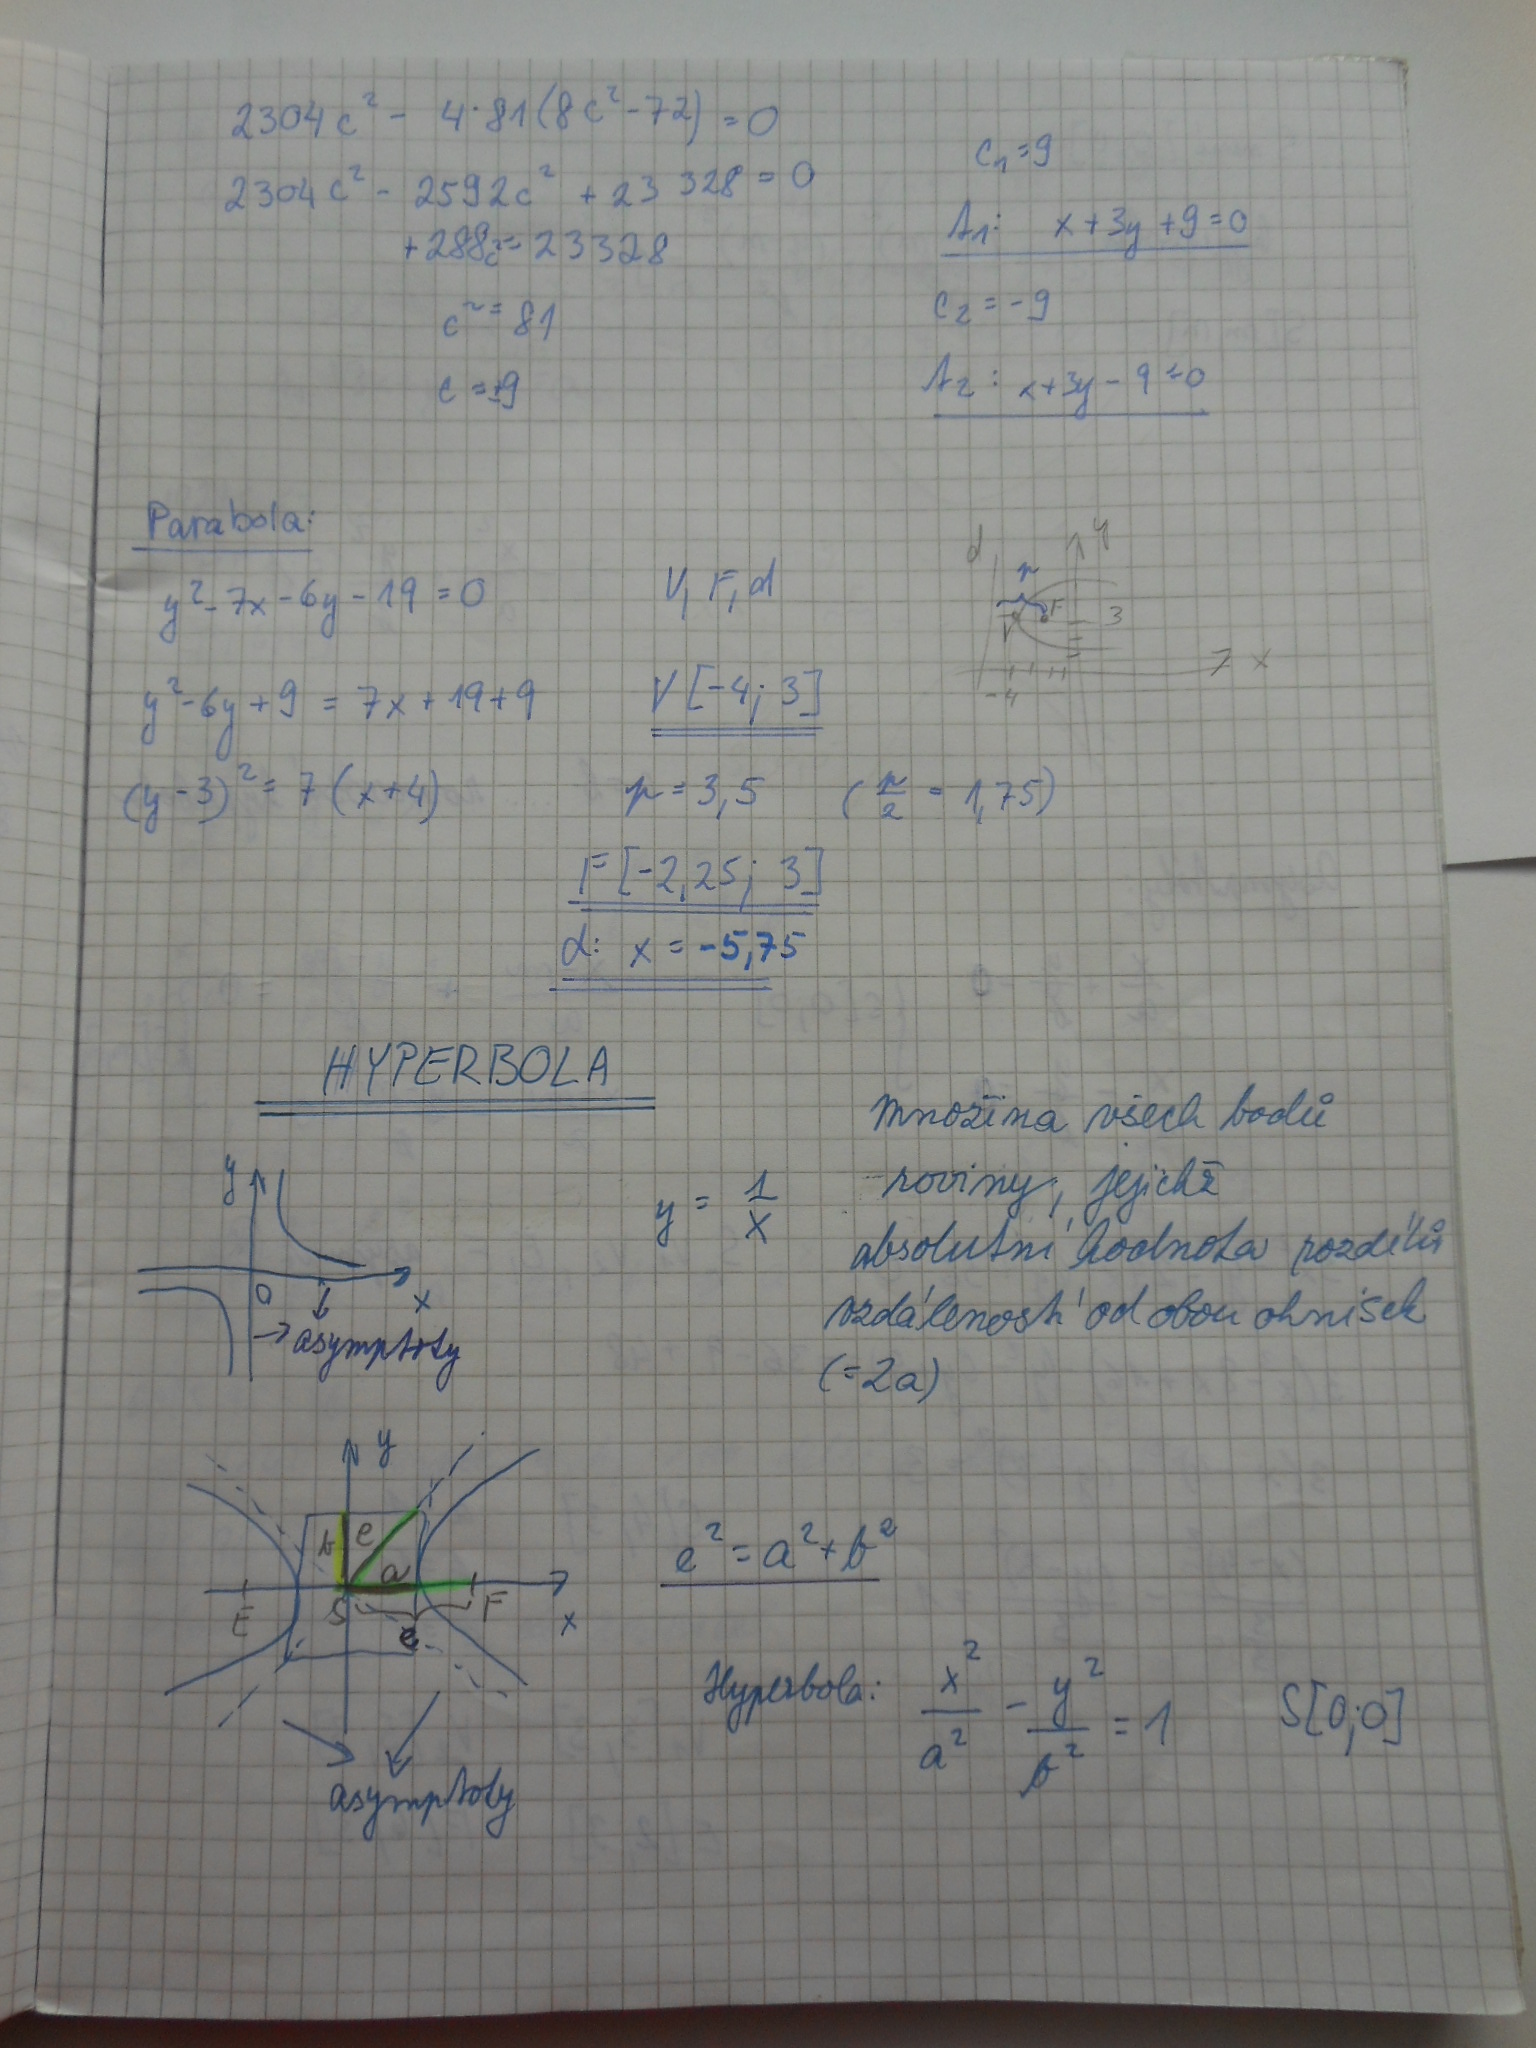 2304c² - 4·81(8c²-72) = 0
2304c² - 2592c² + 23 328 = 0
+288c² = 23328
c² = 81
c = ±9
c₁ = 9
t₁: x+3y+9=0
c₂ = -9
t₂: x+3y-9=0
Parabola:
y² - 7x - 6y - 19 = 0
V, F, d
y² - 6y + 9 = 7x + 19 + 9
V [-4; 3]
(y-3)² = 7(x+4)
p = 3,5 (p/2 = 1,75)
F [-2,25; 3]
d: x = -5,75
d
y
p
F
V
3
-4
x
HYPERBOLA
y
0
x
asymptoty
y = 1/x
Množina všech bodů
roviny, jejichž
absolutní hodnota rozdílů
vzdáleností od obou ohnisek
(=2a)
y
b
e
a
E
S
F
e
x
asymptoty
e² = a² + b²
Hyperbola: x²/a² - y²/b² = 1 S[0;0]